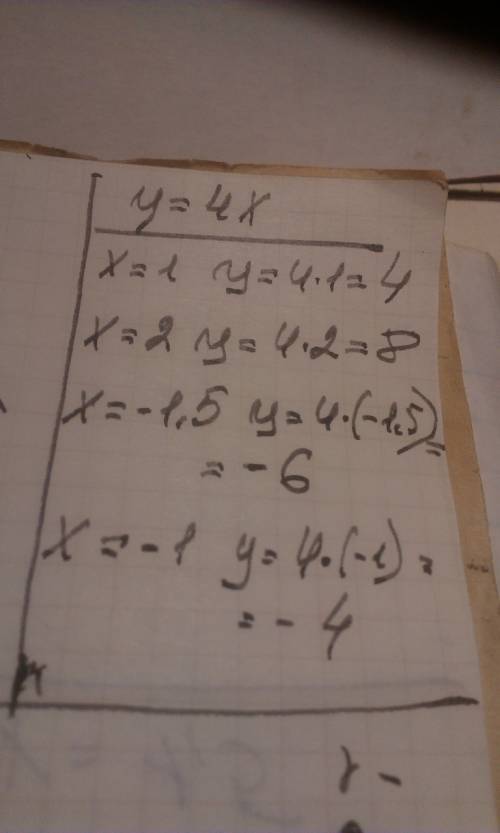 y = 4x
x = 1 y = 4·1 = 4
x = 2 y = 4·2 = 8
x = -1,5 y = 4·(-1,5) =
= -6
x = -1 y = 4·(-1) =
= -4